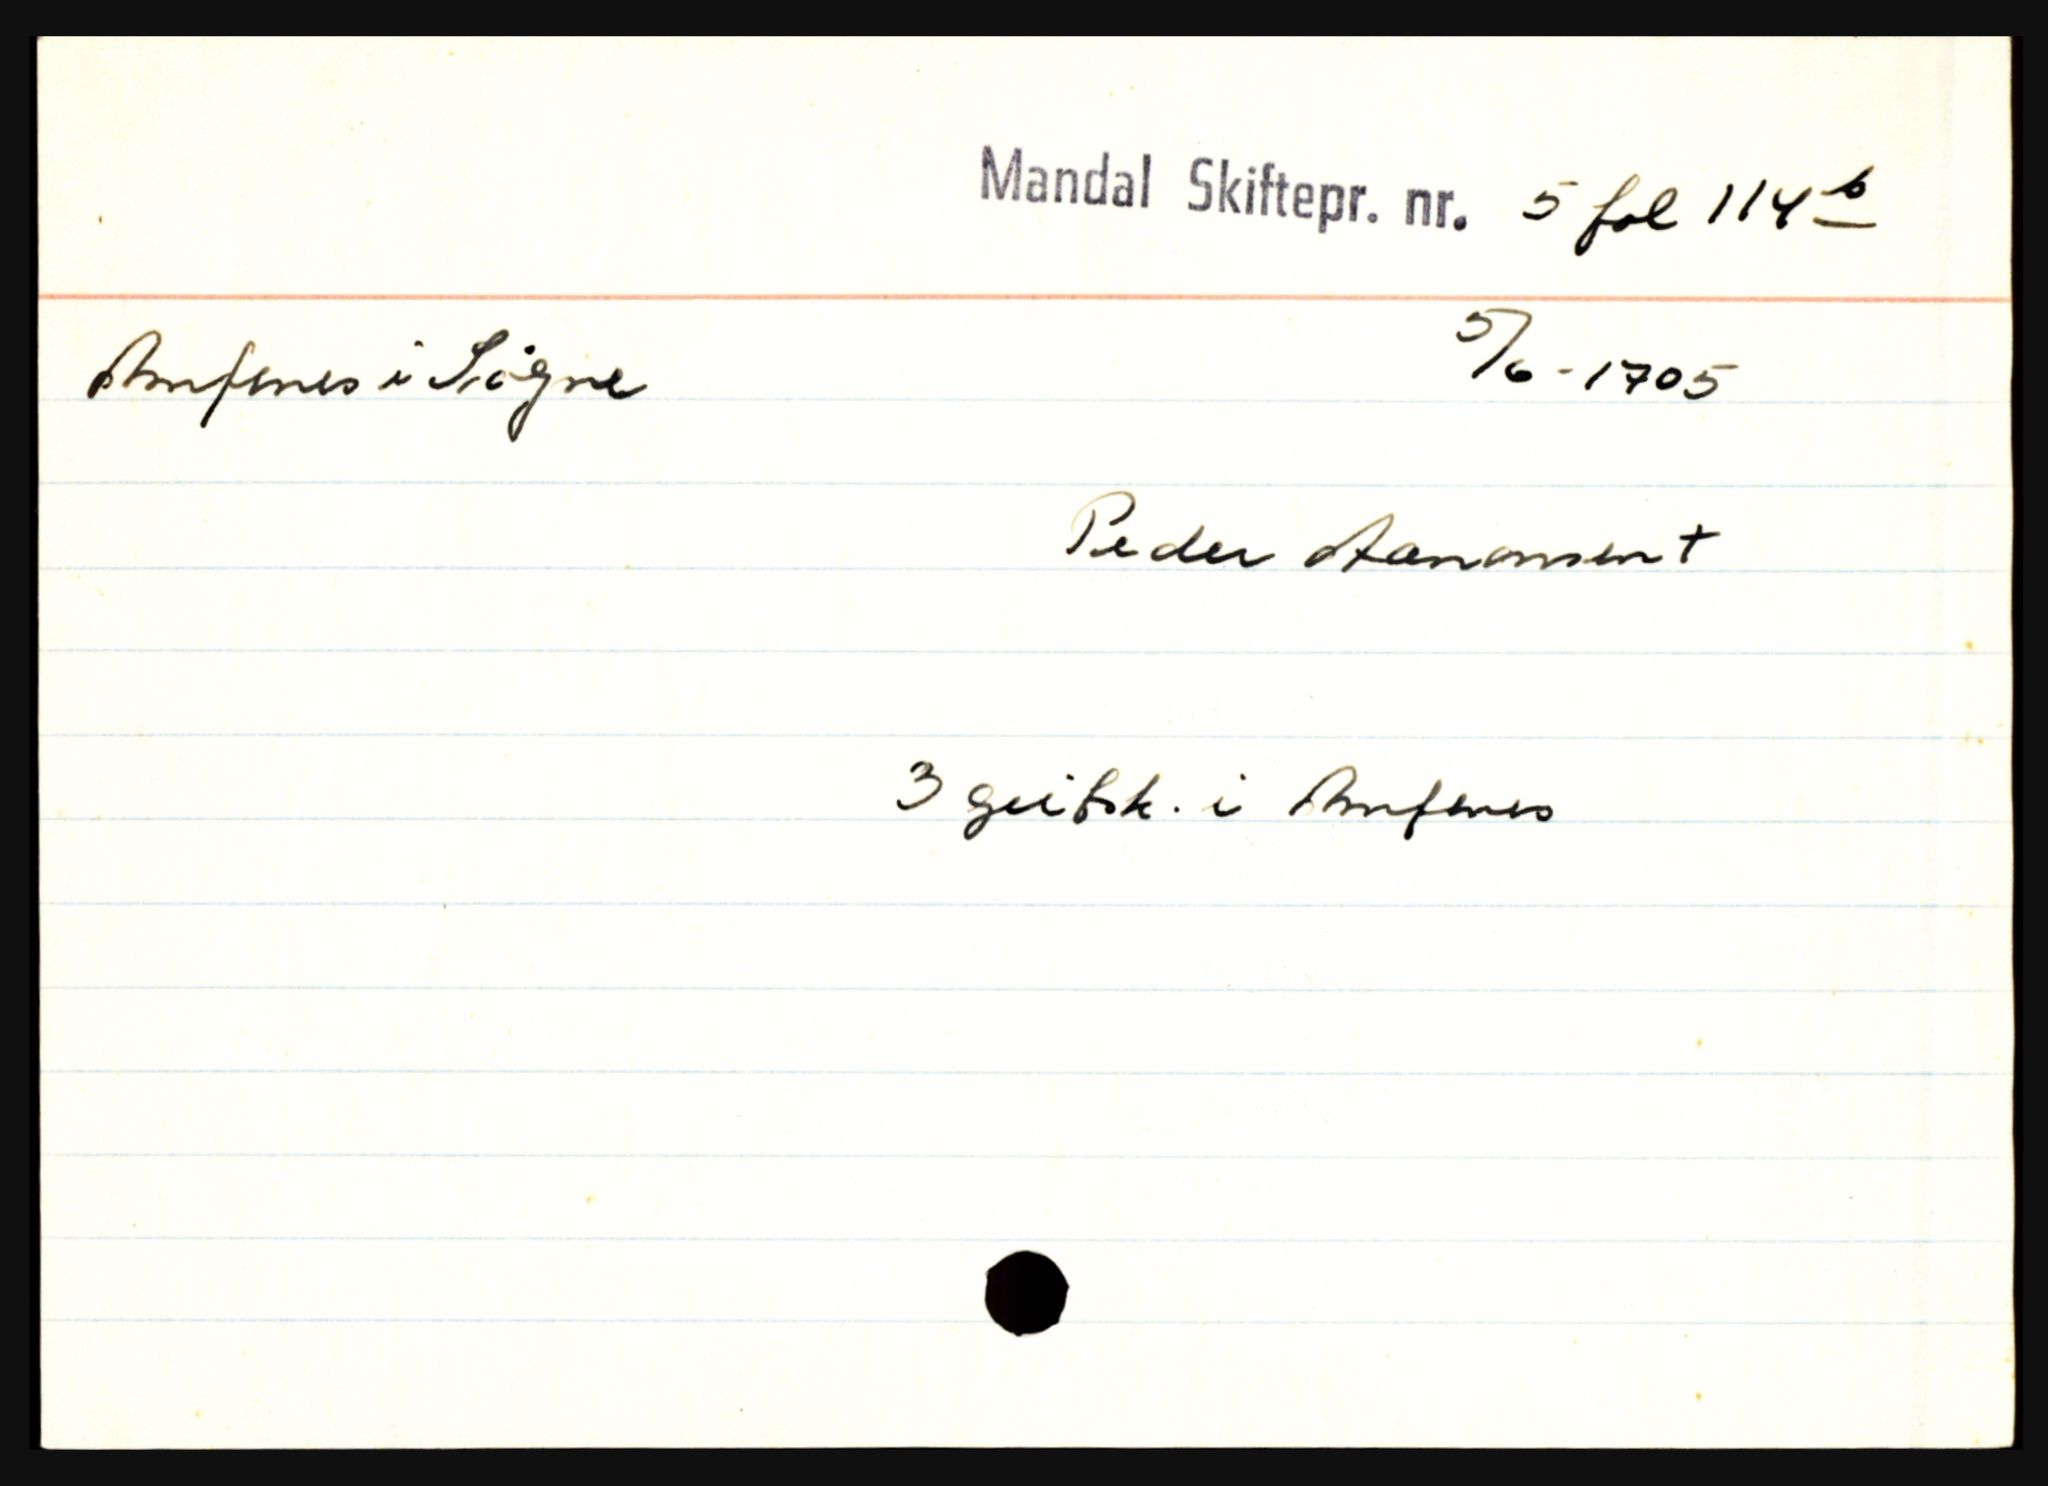 Mandal Skiftepr. nr. 5 fol 114 b
Amfenes i Søgne
5/6 - 1705
Peder Aanonsen +
3 geitsk. i Amfenes